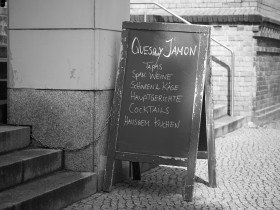 Queso y Jamon
Tapas
Span Weine
Schinken & Käse
Hauptgerichte
Cocktails
Hausgem Kuchen